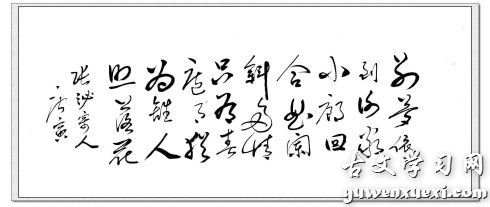 别梦依
依到谢家
小廊回
合曲阑
斜多情
只有春
庭月犹
为離人
照落花
张泌寄人
庚寅
古文学习网
www.guwenxuexi.com